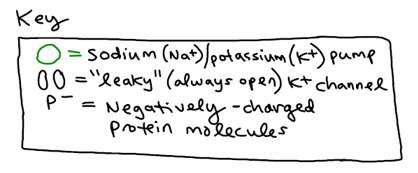 Key
= Sodium (Na+)/potassium (K+) pump
= "leaky" (always open) K+ channel
P⁻ = Negatively-charged
protein molecules